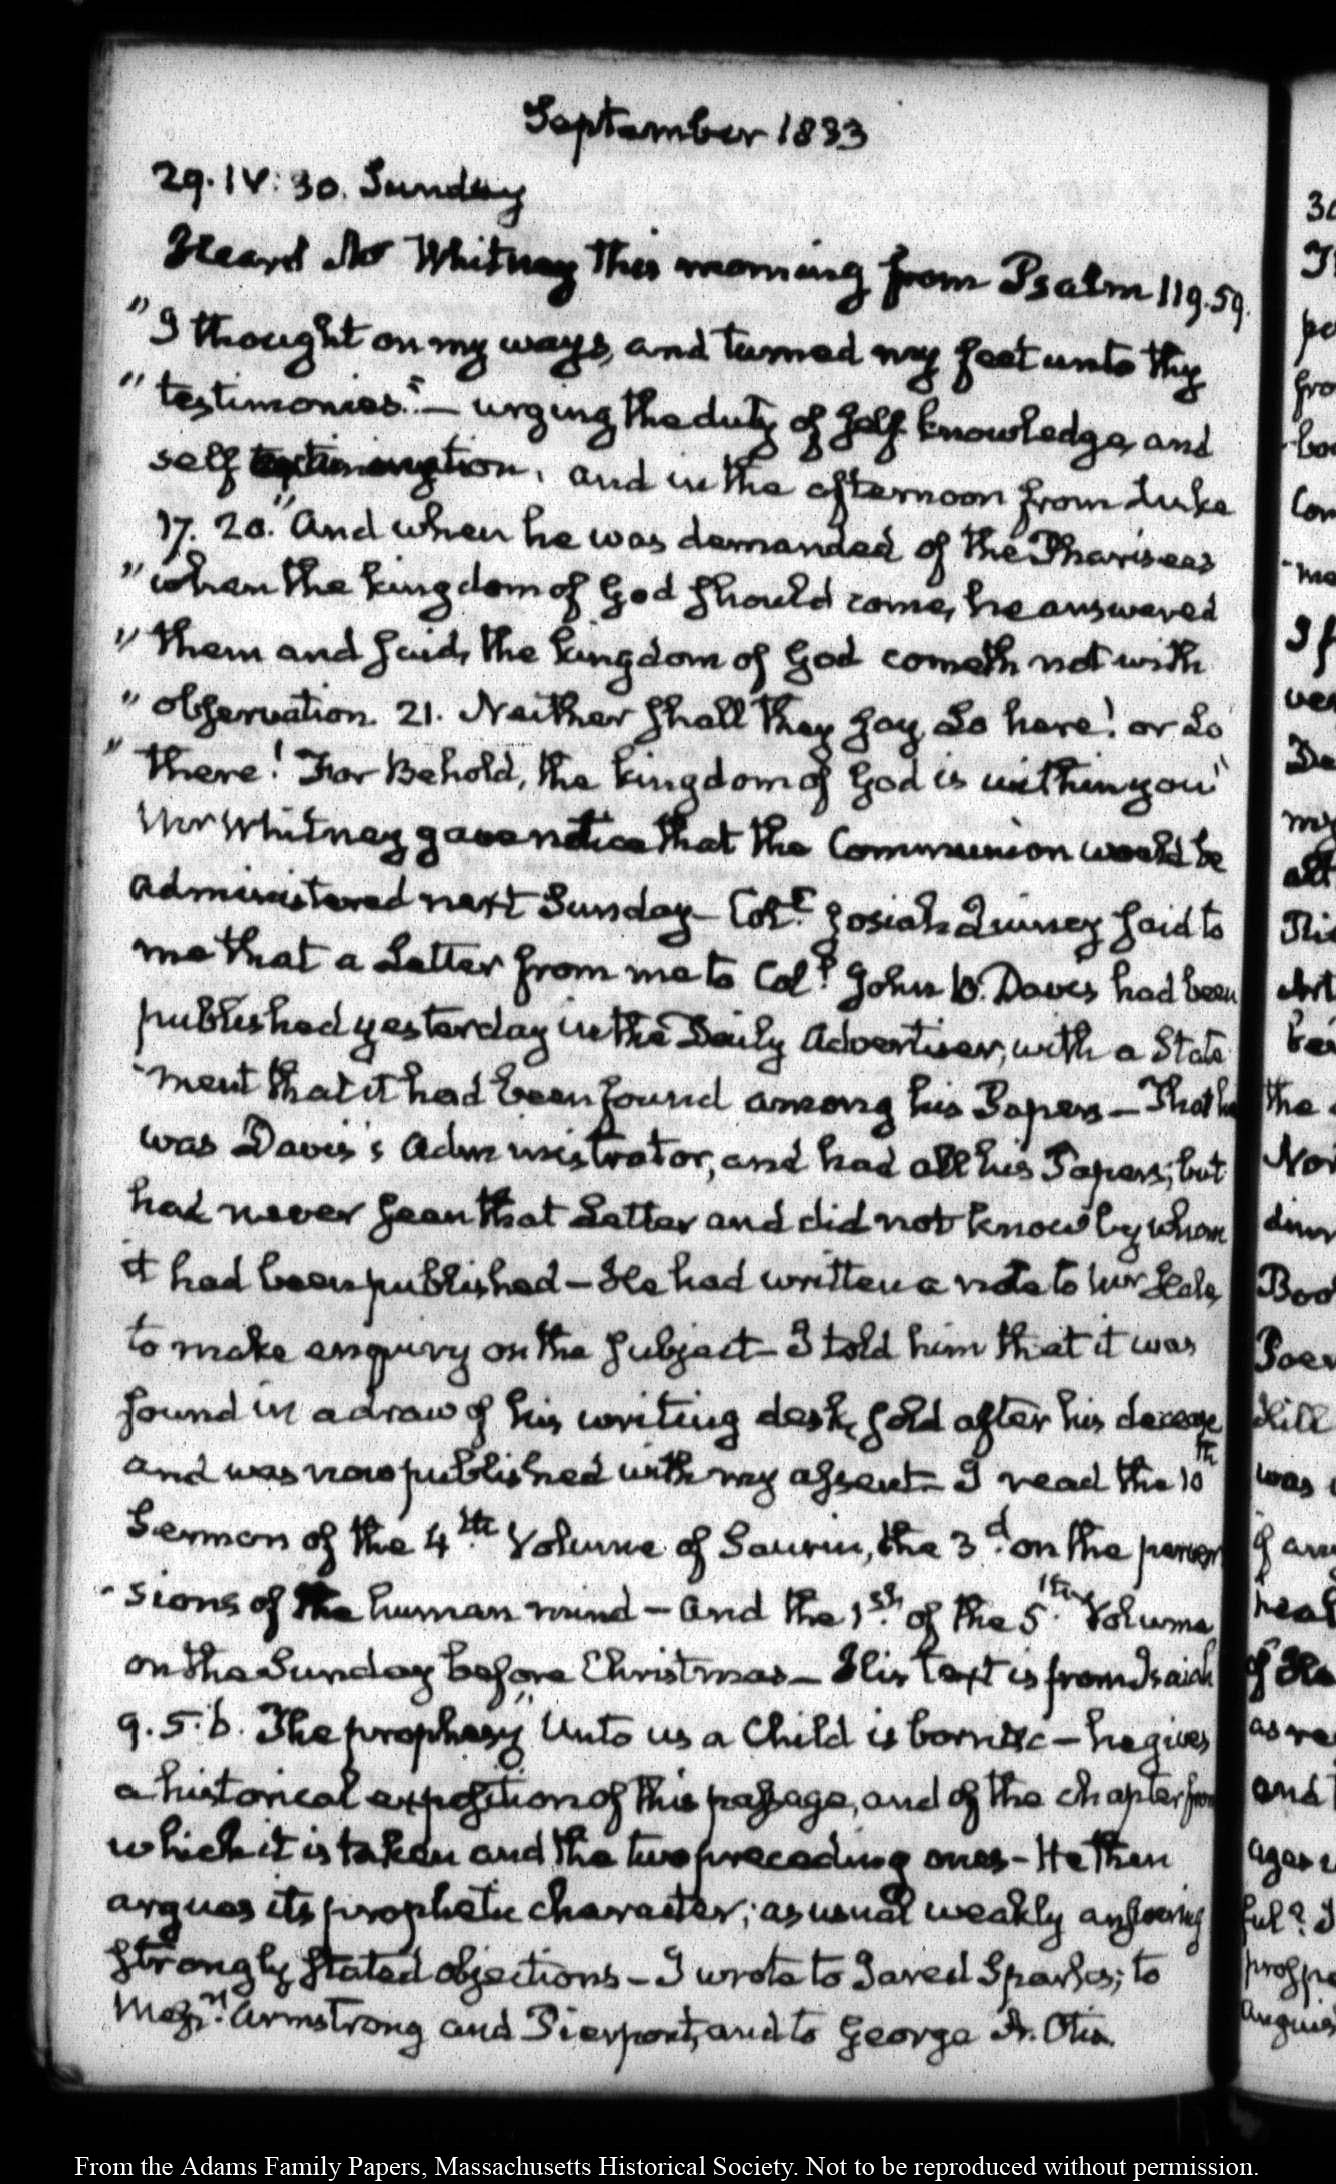 September 1833
29. IV: 30. Sunday
Heard Mr Whitney this morning from Psalm 119.59.
"I thought on my ways, and turned my feet unto thy
"testimonies." — urging the duty of self knowledge, and
self examination, and in the afternoon from Luke
17. 20. "And when he was demanded of the Pharisees
"when the kingdom of God should come, he answered
"them and said, the kingdom of God cometh not with
"observation. 21. Neither shall they say, Lo here! or Lo
"there! For Behold, the kingdom of God is within you"
Mr Whitney gave notice that the Communion would be
administered next Sunday — Josiah Quincy said to
me that a Letter from me to Coll. John B. Davis had been
published yesterday in the Daily Advertiser, with a State
-ment that it had been found among his Papers — That he
was Davis's Administrator, and had all his Papers; but
had never seen that Letter and did not know by whom
it had been published — He had written a note to Mr Hale,
to make enquiry on the subject — I told him that it was
found in a draw of his writing desk, sold after his decease
and was now published with my assent — I read the 10th
Sermon of the 4th. Volume of Saurin, the 3d. on the perver
-sions of the human mind — and the 1st. of the 5th. Volume
on the Sunday before Christmas — His text is from Isaiah
9. 5. 6. The prophesy "Unto us a Child is born &c — he gives
a historical exposition of this passage, and of the chapter from
which it is taken and the two preceding ones — He then
argues its prophetic character; as usual weakly answering
strongly stated objections — I wrote to Jared Sparks; to
Messrs. Armstrong and Pierpont, and to George A. Otis.
From the Adams Family Papers, Massachusetts Historical Society. Not to be reproduced without permission.